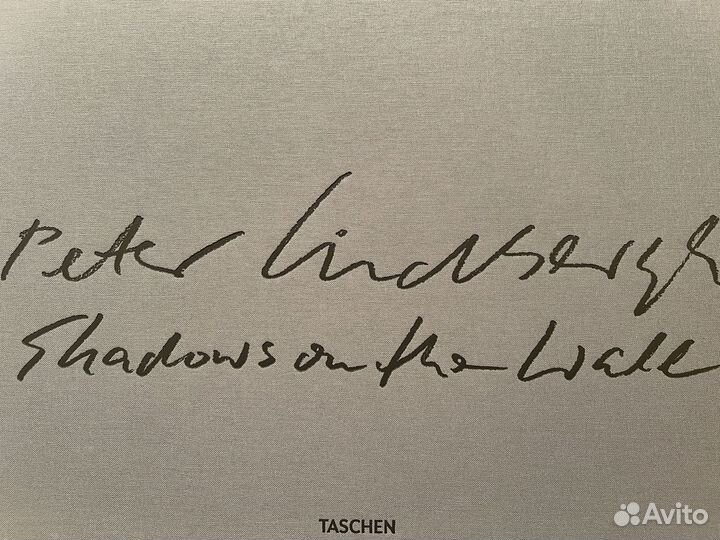 Peter Lindbergh
Shadows on the Wall
TASCHEN
Avito